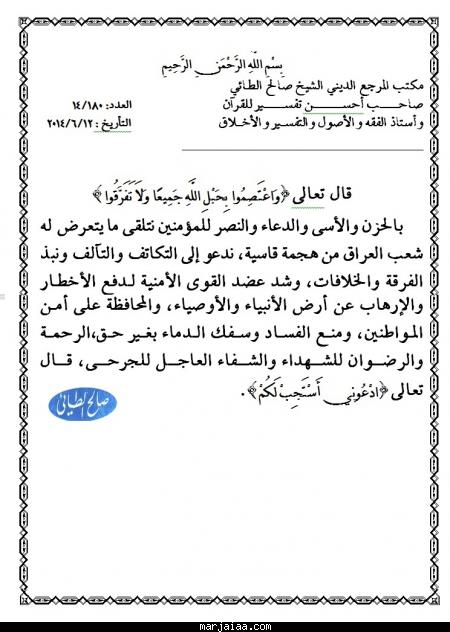 بِسْمِ اللَّهِ الرَّحْمَنِ الرَّحِيمِ
مكتب المرجع الديني الشيخ صالح الطائي
صاحب أحسن تفسير للقرآن
العدد: ١٤/١٨٠
وأستاذ الفقه والأصول والتفسير والأخلاق
التأريخ : ٢٠١٤/٦/١٢
قال تعالى ﴿وَاعْتَصِمُوا بِحَبْلِ اللَّهِ جَمِيعًا وَلَا تَفَرَّقُوا﴾
بالحزن والأسى والدعاء والنصر للمؤمنين نتلقى ما يتعرض له
شعب العراق من هجمة قاسية، ندعو إلى التكاتف والتآلف ونبذ
الفرقة والخلافات، وشد عضد القوى الأمنية لدفع الأخطار
والإرهاب عن أرض الأنبياء والأوصياء، والمحافظة على أمن
المواطنين، ومنع الفساد وسفك الدماء بغير حق،الرحمة
والرضوان للشهداء والشفاء العاجل للجرحى، قال
تعالى ﴿ادْعُونِي أَسْتَجِبْ لَكُمْ﴾.
صالح الطائي
marjaiaa.com